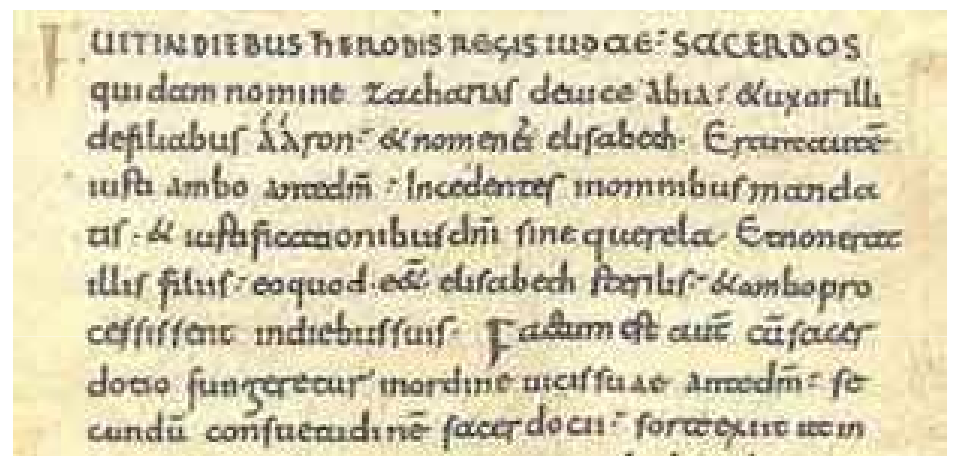 FUIT IN DIEBUS HERODIS REGIS IUDAE: SACERDOS
quidam nomine Zacharias de uice abia: & uxor illi
de filiabus áaron: & nomen ei elisabeth. Erant autē
iusti ambo ante dm̄: Incedentes in omnibus manda
tis. & iustificationibus dni sine querela. Et non erat
illis filius: eo quod eēt elisabeth sterilis: & ambo pro
cessissent in diebus suis. Factum est autē cū sacer
dotio fungeretur in ordine uicis suae ante dm̄: se
cundū consuetudinē sacerdotii: sorte exiit ut in